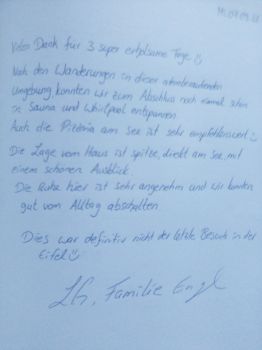 Vielen Dank für 3 super erholsame Tage
Nach den Wanderungen in dieser atemberaubenden
Umgebung, konnten wir zum Abschluss noch einmal schön
in Sauna und Whirlpool entspannen.
Auch die Pizzeria am See ist sehr empfehlenswert
Die Lage vom Haus ist spitze, direkt am See, mit
einem schönen Ausblick.
Die Ruhe hier ist sehr angenehm und wir konnten
gut vom Alltag abschalten.
Dies war definitiv nicht der letzte Besuch in der
Eifel
LG, Familie Engel